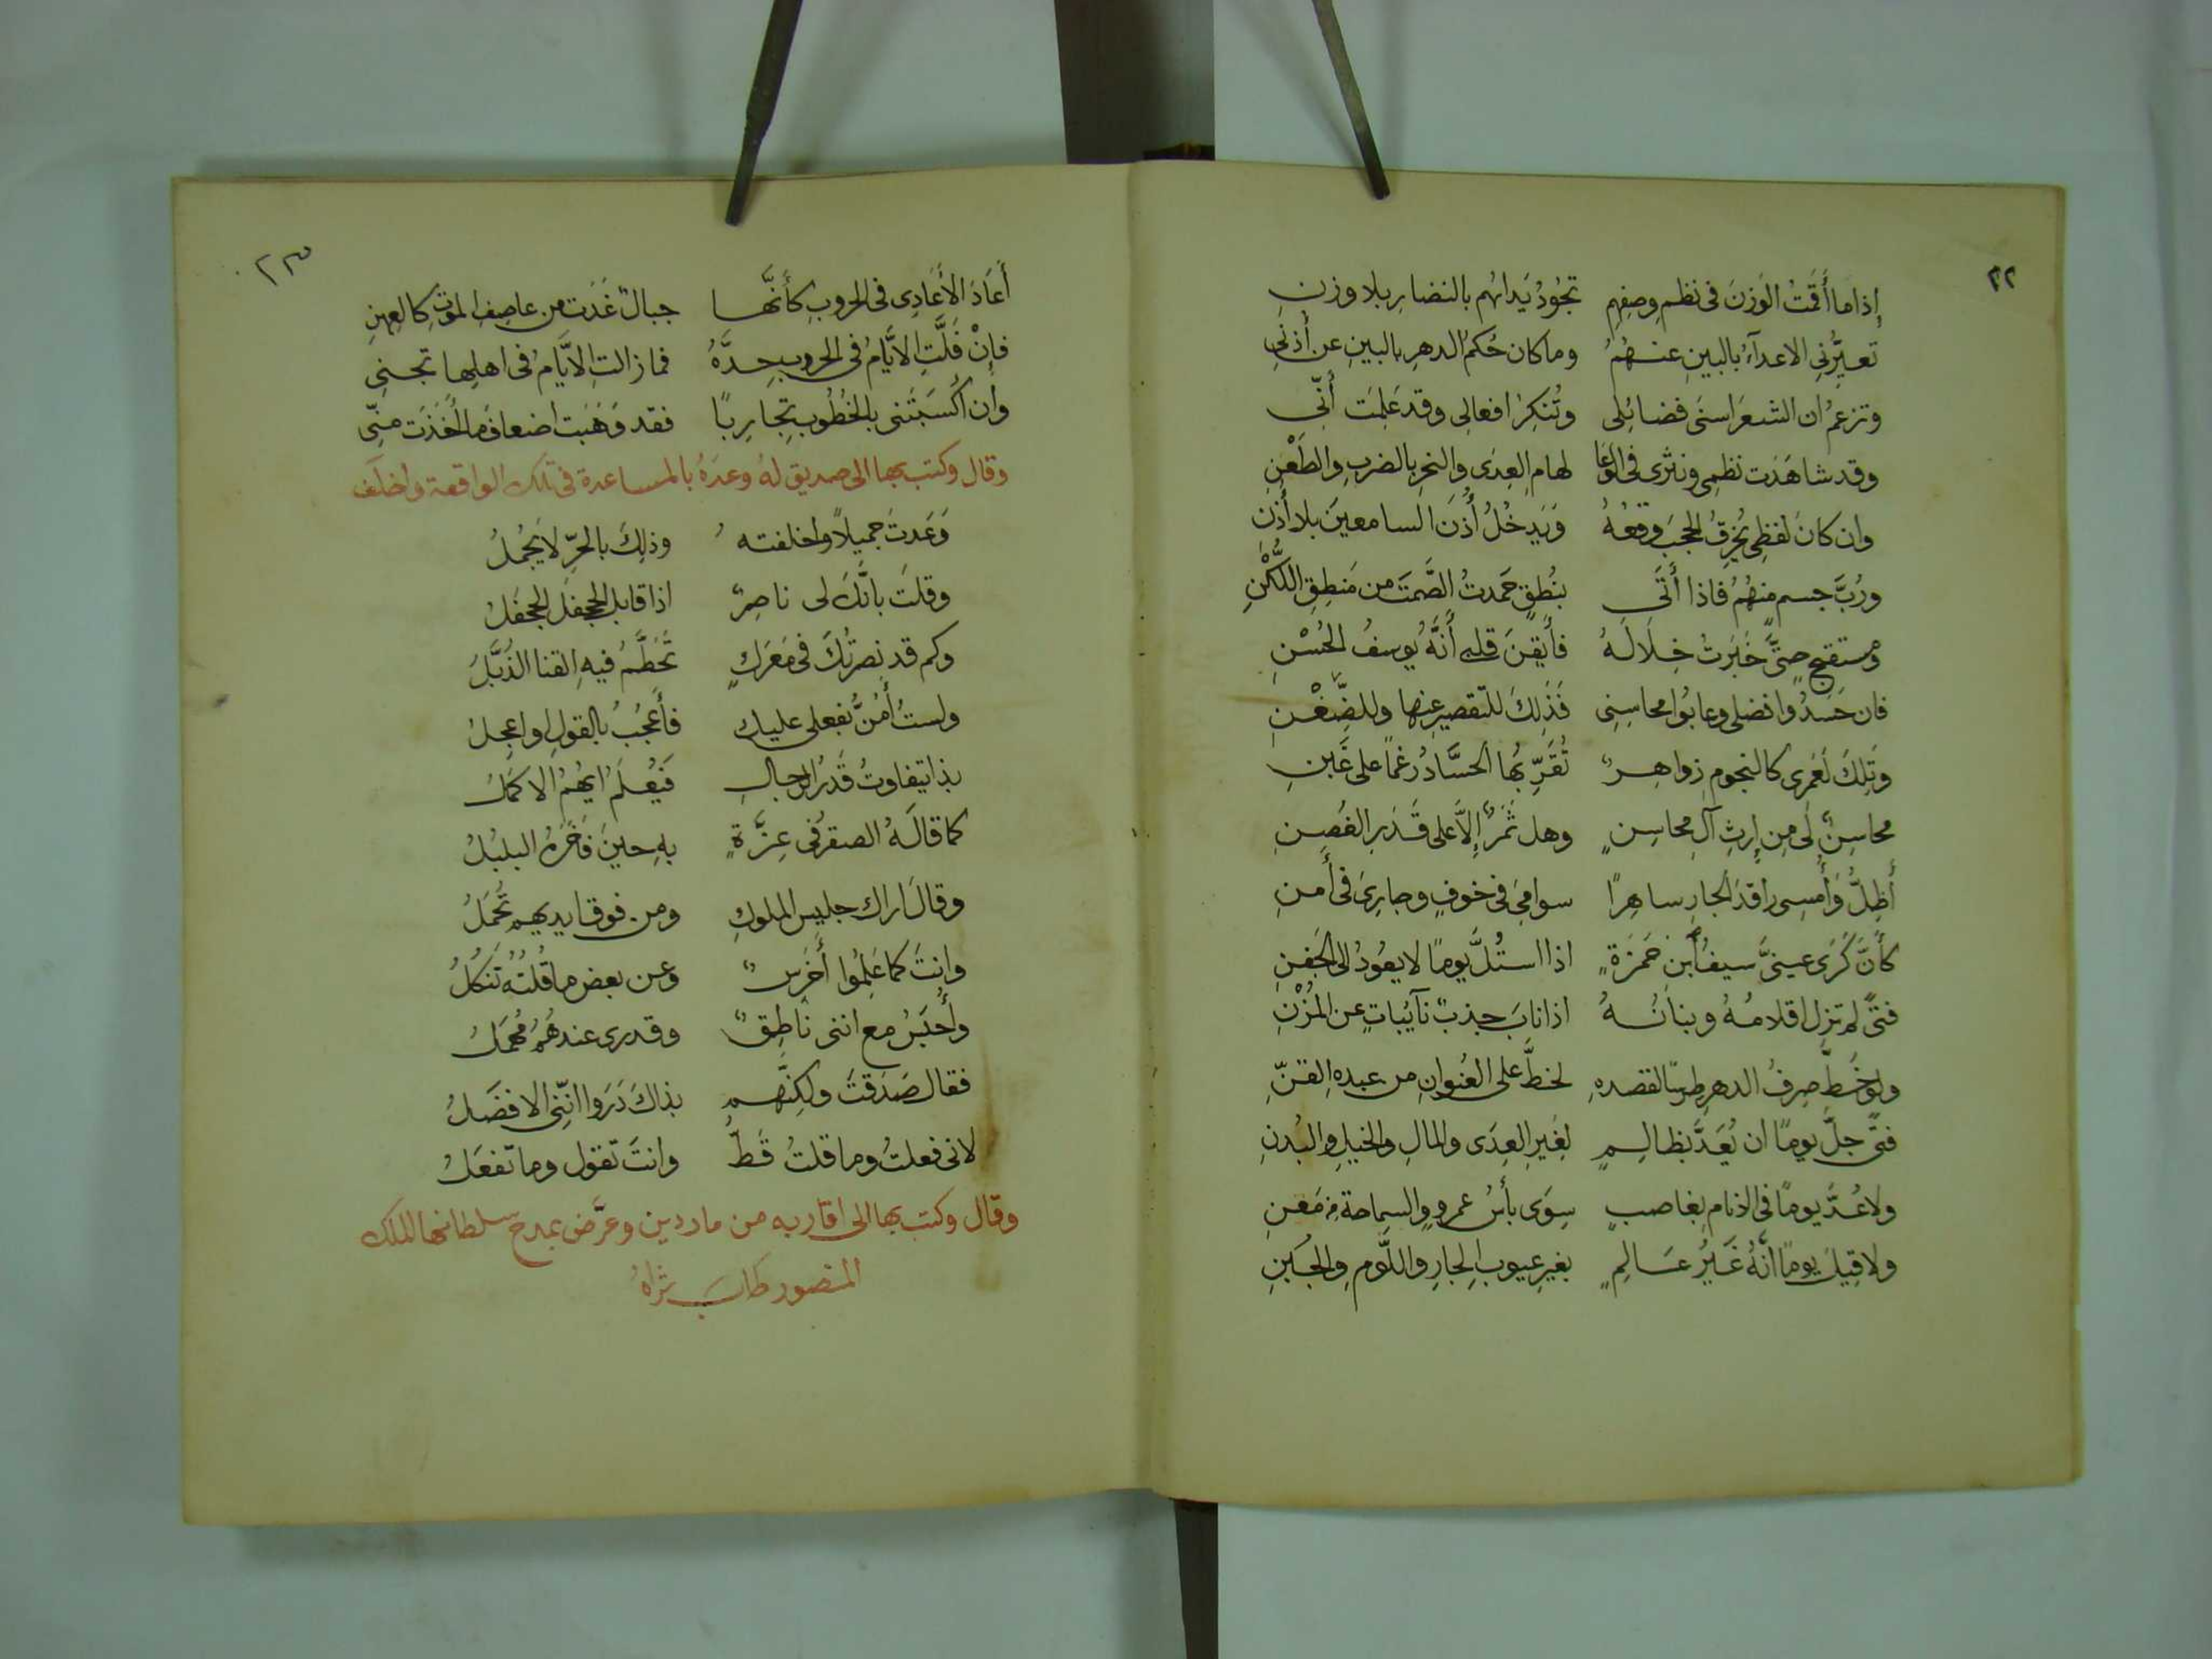 ٢٢
إذا ما أَقَمْتُ الوَزنَ فى نظمِ وصفِهِم تجُودُ يَداهُم بالنضارِ بلا وزنِ
تعيِّرُنى الاعدآءُ بالبينِ عنهُمُ وما كان حُكمُ الدهرِ بالبينِ عن أذنى
وتزعمُ ان الشعرَ اسنَى فضائلى وتُنكِرُ افعالى وقد عَلِمَت أنّى
وقد شاهَدَت نظمى ونثرى فى الوَغَا لهامِ العِدَى والنحرِ بالضربِ والطَعْنِ
وان كانَ لفظِى يُخرِقُ الحجبَ وقعُهُ وَيَدخُلُ أُذنَ السامعينَ بلا أُذنِ
ورُبَّ جسمٍ مِنهُمُ فاذا أَتَى بنُطقٍ حَمدتُ الصَّمتَ من مَنطِقِ اللُّكْنِ
ومستقبحٍ حتَّى خَبَرتُ خِلالَهُ فأَيقنَ قلبى أَنَّهُ يُوسفُ الحُسْنِ
فان حَسَدُوا فضلى وعابُوا محاسِنِى فَذَلِكَ للتقصيرِ عنها وللضِّغْنِ
وَتِلكَ لَعَمرى كالنجومِ زواهِرٌ تُقَرِّ بُها الحسَّادُ رغماً على غَبنِ
محاسِنُ لى مِن إرثِ آلِ محاسِنٍ وهل ثَمَرٌ إِلاَّ على قَدَرِ الغُصنِ
أَظِلُّ وَأُمسِى راقدَ الجارِ ساهِرًا سوامِىَ فى خوفٍ وجارِىَ فى أَمنِ
كأنَّ كَرَى عينىَّ سيفُ أبنِ حَمزَةٍ اذا استُلَّ يومًا لا يعُودُ الى الجَفنِ
فتًى لم تزل اقلامُهُ وبنانُهُ اذا نابَ جذبٌ نآئباتٍ عن المُزْنِ
ولو خَطَّ صِرفُ الدهرِ طِرسًا لقصدهِ لخطَّ على العُنوانِ من عبدهِ القنِّ
فتًى جلَّ يومًا ان يُعَدَّ بظالمٍ لِغَيرِ العِدَى والمالِ والخيلِ والبُدنِ
ولا عُدَّ يومًا فى الانام بِغاصبٍ سِوَى بأسِ عمروٍ والسماحةِ مِن مَعنِ
ولا قِيلَ يومًا انَّهُ غَيرُ عَالِمٍ بغيرِ عيوبِ الجارِ واللَّومِ والجُبنِ
٢٣
أَعَادَ الأَعَادِى فى الحروبِ كأَنَّها جبالٌ غَدَت من عاصِفِ الموتِ كالعِهنِ
فإِنْ فَلَّتِ الايَّامُ فى الحروبِ حِدَّهُ فما زالتِ الايَّامُ فى اهلِها تجنى
وإن أكسَبَتنى بالخُطُوبِ تجارِبًا فقد وَهَبَت اضعافَ ما أُخَذَت مِنّى
وقال وكتب بها الى صديق لهُ وعدَهُ بالمساعدة فى تلك الواقعة واخلَف
وَعَدتَ جميلاً واخلفتهُ وذلِكَ بالحرِّ لا يَجمُلُ
وقلتَ بانَّكَ لى ناصِرٌ اذا قابل الجحفلَ الجحفَلُ
وكم قد نصرتُكَ فى مَعرَكٍ تُحَطَّمُ فيهِ القنا الذُبَّلُ
ولستُ أَمُنُّ بفعلى عليك فأَعجُبُ بالقولِ او اعجلُ
بذا يتفاوتُ قَدرُ الرجالِ فَيُعلَمُ ايُّهُمُ الاكمَلُ
كما قالَهُ الصقرُ فى عِزَّةٍ بهِ حينَ فَاخَرَهُ البلبُلُ
وقالَ اراك جليسَ الملوكِ ومن فوق ايديهِم تُحمَلُ
وانتَ كما عَلِمُوا أَخرَسٌ وعن بعضِ ما قُلتُهُ تَنكُلُ
وأُحبَسُ مع اننى ناطِقٌ وقدرى عندهُمُ مُهمَلُ
فقال صَدَقتَ ولكِنَّهم بذاكَ دَرَوا اننى الافضَلُ
لانى فعلتُ وما قلتُ قَطُّ وانتَ تقول وما تَفعَلُ
وقال وكتب بها الى اقاربه من ماردين وعرَّض بمدح سلطانها الملك
المنصور طابَ ثراهُ